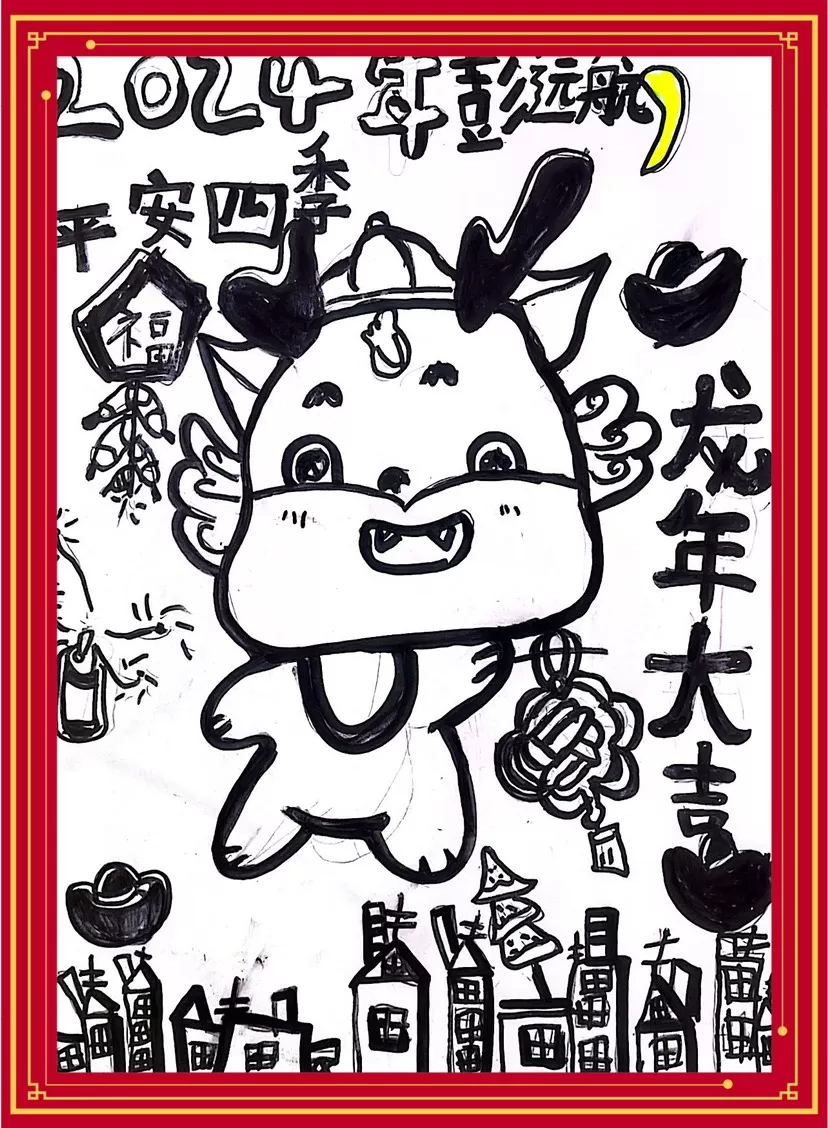 2024年彭远航
平安四季
福
龙年大吉